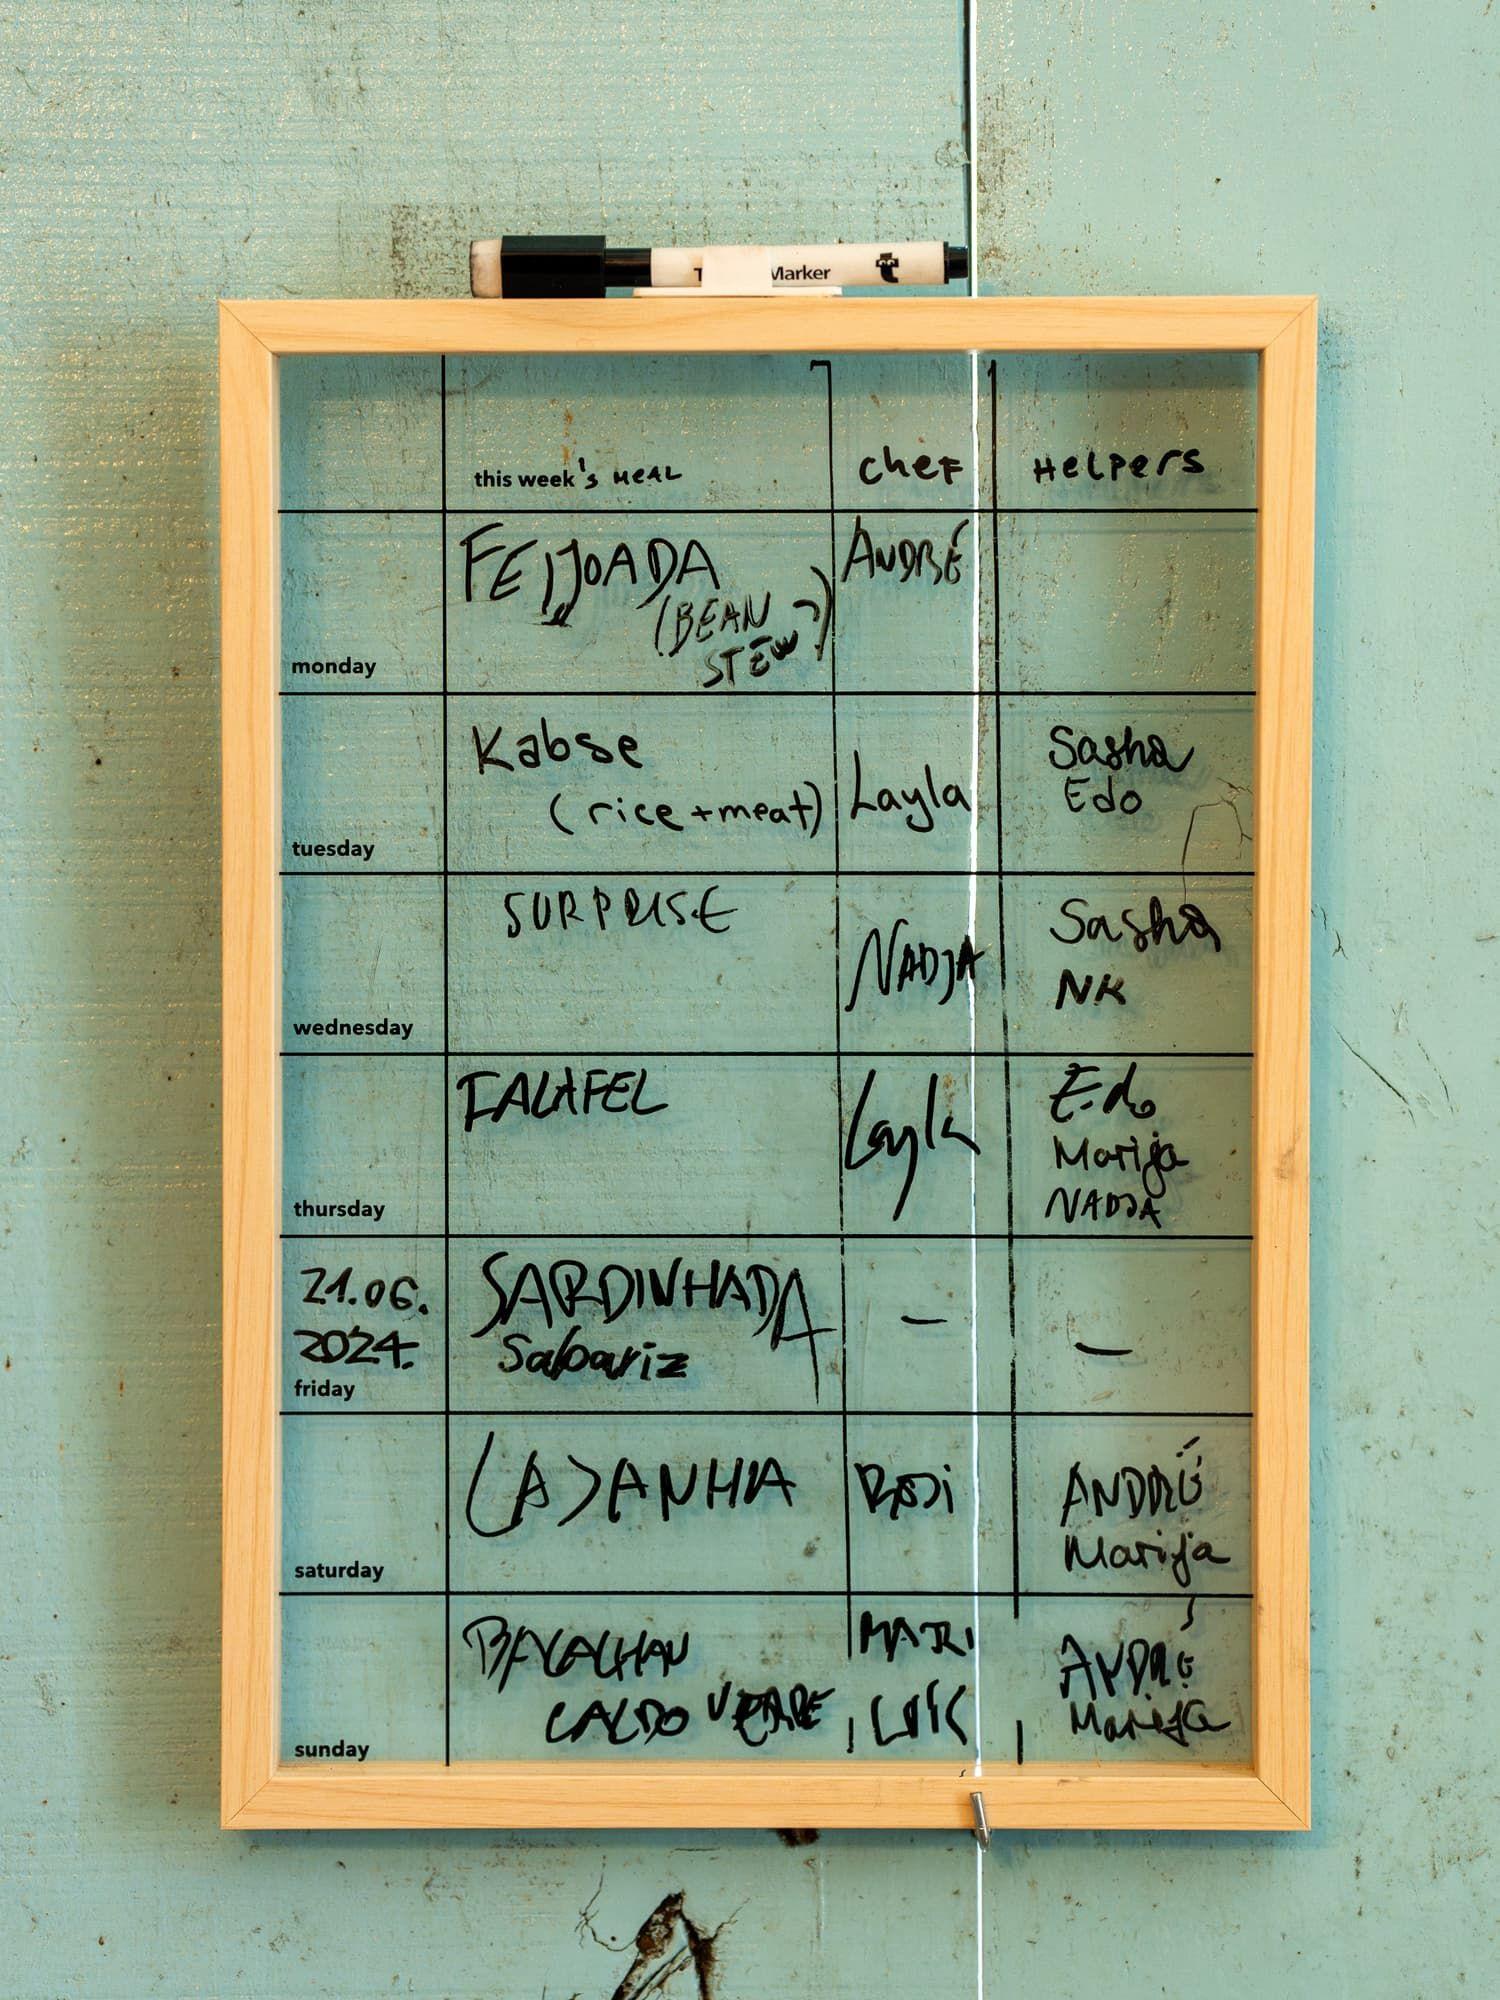 Marker
this week's MEAL chef Helpers
FEIJOADA ANDRÉ
(BEAN
STEW)
monday
Kabse Sasha
(rice + meat) Layla Edo
tuesday
SURPRISE Sasha
NADJA NK
wednesday
FALAFEL Layla Edo
Marija
thursday NADJA
21.06. SARDINHADA – –
2024. Sabariz
friday
LASANHA ANDRÉ
Marija
saturday
BACALHAU ANDRÉ
CALDO VERDE Marija
sunday